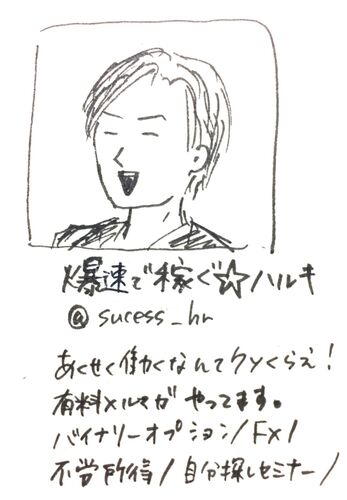 爆速で稼ぐ☆ハルキ
@sucess_hr
あくせく働くなんてクソくらえ!
有料メルマガやってます。
バイナリーオプション/FX/
不労所得/自分探しセミナー/